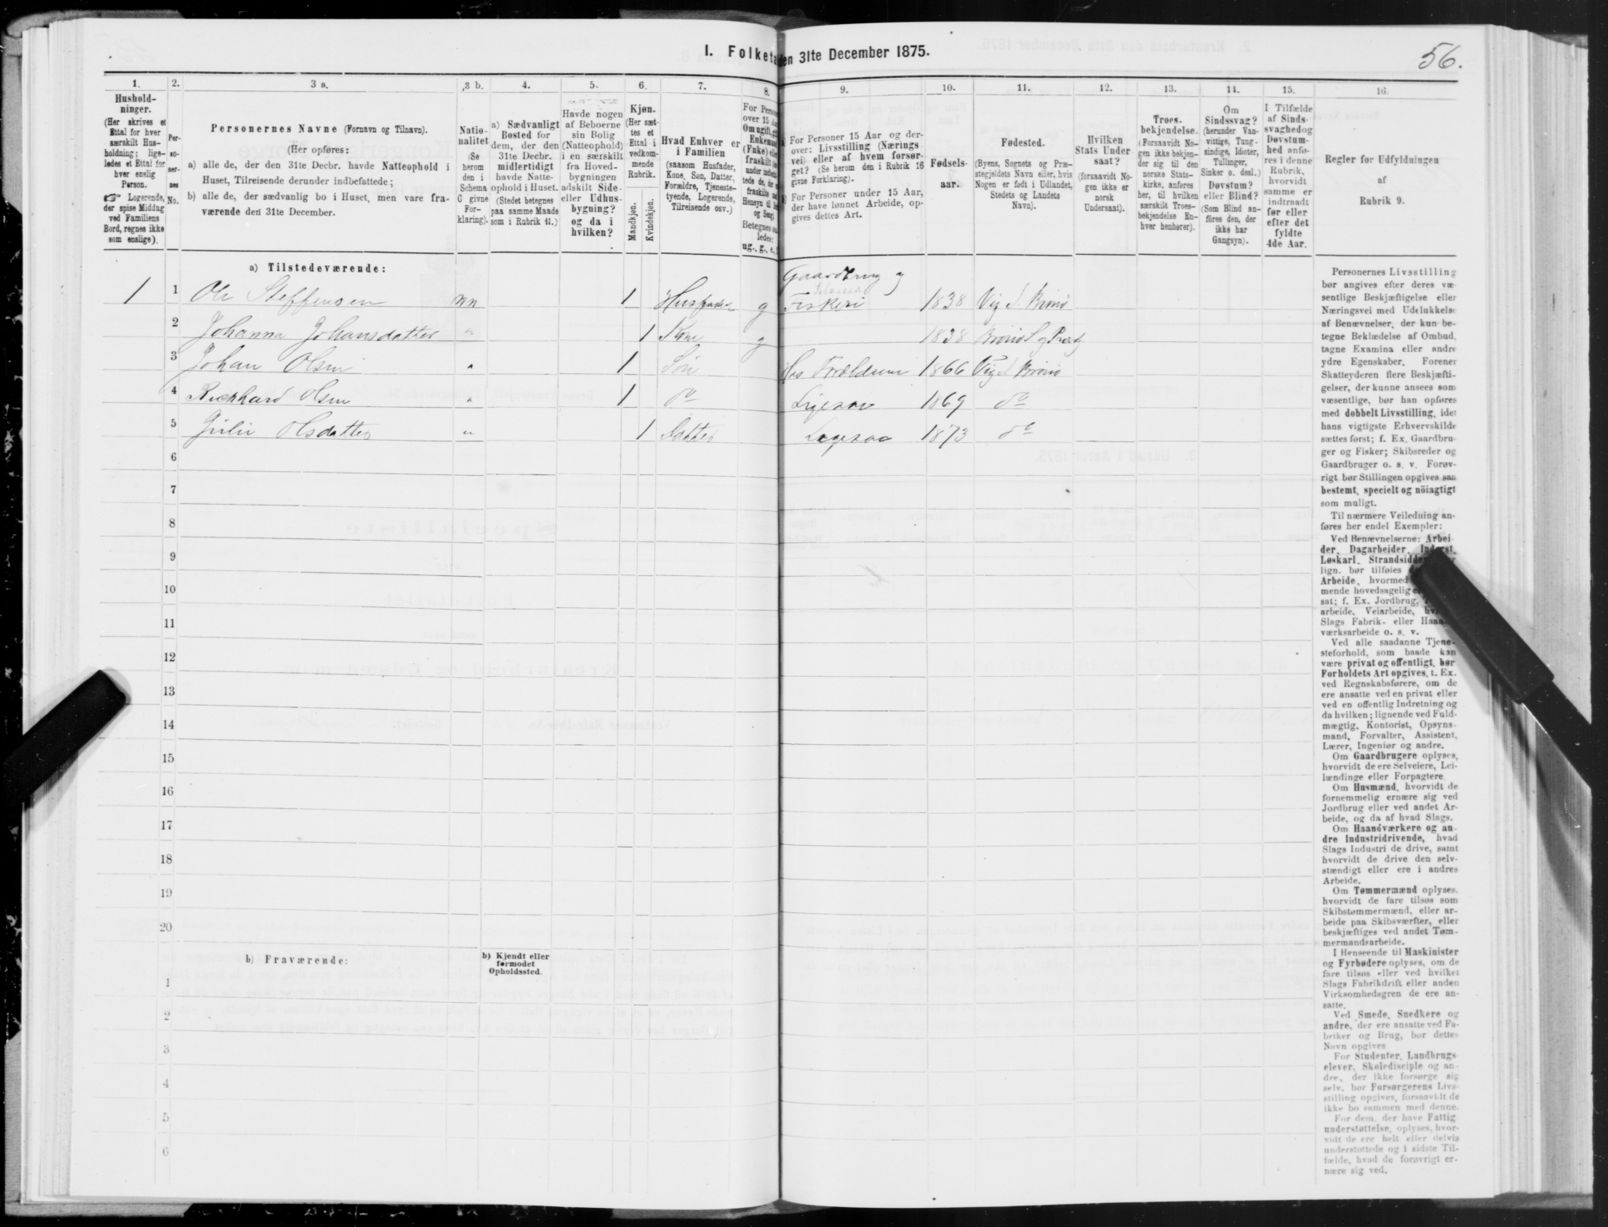 I. Folketæ
en 31te December 1875.
56.
1. 2. 3 a. 3 b. 4. 5. 6. 7. 8. 9. 10. 11. 12. 13. 14. 15. 16.
Hushold-
ninger.
(Her skrives et
Ettal for hver
særskilt Hus-
holdning; lige-
ledes et Ettal for
hver enslig
Person.
☞ Logerende,
der spise Middag
ved Familiens
Bord, regnes ikke
som enslige).
Per-
so-
ner-
nes
No.
Personernes Navne (Fornavn og Tilnavn).
(Her opføres:
a) alle de, der den 31te Decbr. havde Natteophold i
Huset, Tilreisende derunder indbefattede;
b) alle de, der sædvanlig bo i Huset, men vare fra-
værende den 31te December.
Natio-
nalitet
(Se
herom
den i
Schema
C givne
For-
klaring).
a) Sædvanligt
Bosted for
dem, der den
31te Decbr.
midlertidigt
havde Natte-
ophold i Huset.
(Stedet betegnes
paa samme Maade
som i Rubrik 11.)
Havde nogen
af Beboerne
sin Bolig
(Natteophold)
i en særskilt
fra Hoved-
bygningen
adskilt Side-
eller Udhus-
bygning?
og da i
hvilken?
Kjøn.
(Her sæt-
tes et
Ettal i
vedkom-
mende
Rubrik.
Mandkjøn.
Kvindekjøn.
Hvad Enhver er
i Familien
(saasom Husfader,
Kone, Søn, Datter,
Forældre, Tjeneste-
tyende, Logerende,
Tilreisende osv.)
For Personer 15 Aar og der-
over: Livsstilling (Nærings
vei) eller af hvem forsør-
get? (Se herom den i Rubrik 16
givne Forklaring).
For Personer under 15 Aar,
der have lønnet Arbeide, op-
gives dettes Art.
Fødsels-
aar.
Fødested.
(Byens, Sognets og Præ-
stegjeldets Navn eller, hvis
Nogen er født i Udlandet,
Stedets og Landets
Navn).
Hvilken
Stats Under
saat?
(forsaavidt No-
gen ikke er
norsk
Undersaat).
Troes-
bekjendelse.
(Forsaavidt No-
gen ikke bekjen-
der sig til den
norske Stats-
kirke, anføres
her, til hvilken
særskilt Troes-
bekjendelse En-
hver henhører).
Om
Sindssvag?
(herunder Van-
vittige, Tung-
sindige, Idioter,
Tullinger,
Sinker o. desl.)
Døvstum?
eller Blind?
(Som Blind an-
føres den, der
ikke har
Gangsyn).
I Tilfælde
af Sinds-
svaghed og
Døvstum-
hed anfø-
res i denne
Rubrik,
hvorvidt
samme er
indtraadt
før eller
efter det
fyldte
4de Aar.
Regler for Udfyldningen
af
Rubrik 9.
a) Tilstedeværende:
1 1 Ole Steffensen nn 1 Husfader g Gaardbrug og Fiskeri 1838 Vig S. Brønø
2 Johanna Johansdatter " 1 Kone g 1838
3 Johan Olsen " 1 Søn Hos Forældrene 1866 Vig S. Brønø
4 Olsen " 1 do Ligesaa 1869 do
5 Olsdatter " 1 Datter Ligesaa 1873 do
6
7
8
9
10
11
12
13
14
15
16
17
18
19
20
b) Fraværende:
b) Kjendt eller
formodet
Opholdssted.
1
2
3
4
5
6
Personernes Livsstilling
bør angives efter deres væ-
sentlige Beskjæftigelse eller
Næringsvei med Udelukkelse
af Benævnelser, der kun be-
tegne Beklædelse af Ombud,
tagne Examina eller andre
ydre Egenskaber. Forener
Skatteyderen flere Beskjæfti-
gelser, der kunne ansees som
væsentlige, bør han opføres
med dobbelt Livsstilling, idet
hans vigtigste Erhvervskilde
sættes først; f. Ex. Gaardbru-
ger og Fisker; Skibsreder og
Gaardbruger o. s. v. Forøv-
rigt bør Stillingen opgives saa
bestemt, specielt og nöiagtigt
som muligt.
Til nærmere Veiledning an-
føres her endel Exempler:
Ved Benævnelserne: Arbei-
der, Dagarbeider, Inderst,
Løskarl, Strandsidder
lign. bør tilføies
Arbeide, hvormed
mende hovedsagelig
sat; f. Ex. Jordbrug,
arbeide, Veiarbeide,
Slags Fabrik- eller Haand-
værksarbeide o. s. v.
Ved alle saadanne Tjene-
steforhold, som baade kan
være privat og offentligt, bør
Forholdets Art opgives, t. Ex.
ved Regnskabsførere, om de
ere ansatte ved en privat eller
ved en offentlig Indretning og
da hvilken; lignende ved Fuld-
mægtig, Kontorist, Opsyns-
mand, Forvalter, Assistent,
Lærer, Ingeniør og andre.
Om Gaardbrugere oplyses,
hvorvidt de ere Selveiere, Lei-
lændinge eller Forpagtere.
Om Husmænd, hvorvidt de
fornemmelig ernære sig ved
Jordbrug eller ved andet Ar-
beide, og da af hvad Slags.
Om Haandværkere og an-
dre Industridrivende, hvad
Slags Industri de drive, samt
hvorvidt de drive den selv-
stændigt eller ere i andres
Arbeide.
Om Tømmermænd oplyses,
hvorvidt de fare tilsøs som
Skibstømmermænd, eller ar-
beide paa Skibsværfter, eller
beskjæftiges ved andet Tøm-
mermandsarbeide.
I Henseende til Maskinister
og Fyrbødere oplyses, om de
fare tilsøs eller ved hvilket
Slags Fabrikdrift eller anden
Virksomhedsgren de ere an-
satte.
Ved Smede, Snedkere og
andre, der ere ansatte ved Fa-
briker og Brug, bør dettes
Navn opgives.
For Studenter, Landbrugs-
elever, Skoledisciple og an-
dre, der ikke forsørge sig
selv, bør Forsørgerens Livs-
stilling opgives, forsaavidt de
ikke bo sammen med denne.
For dem, der have Fattig-
understøttelse, oplyses, hvor-
vidt de ere helt eller delvis
understøttede og i sidste Til-
fælde, hvad de forøvrigt er-
nære sig ved.